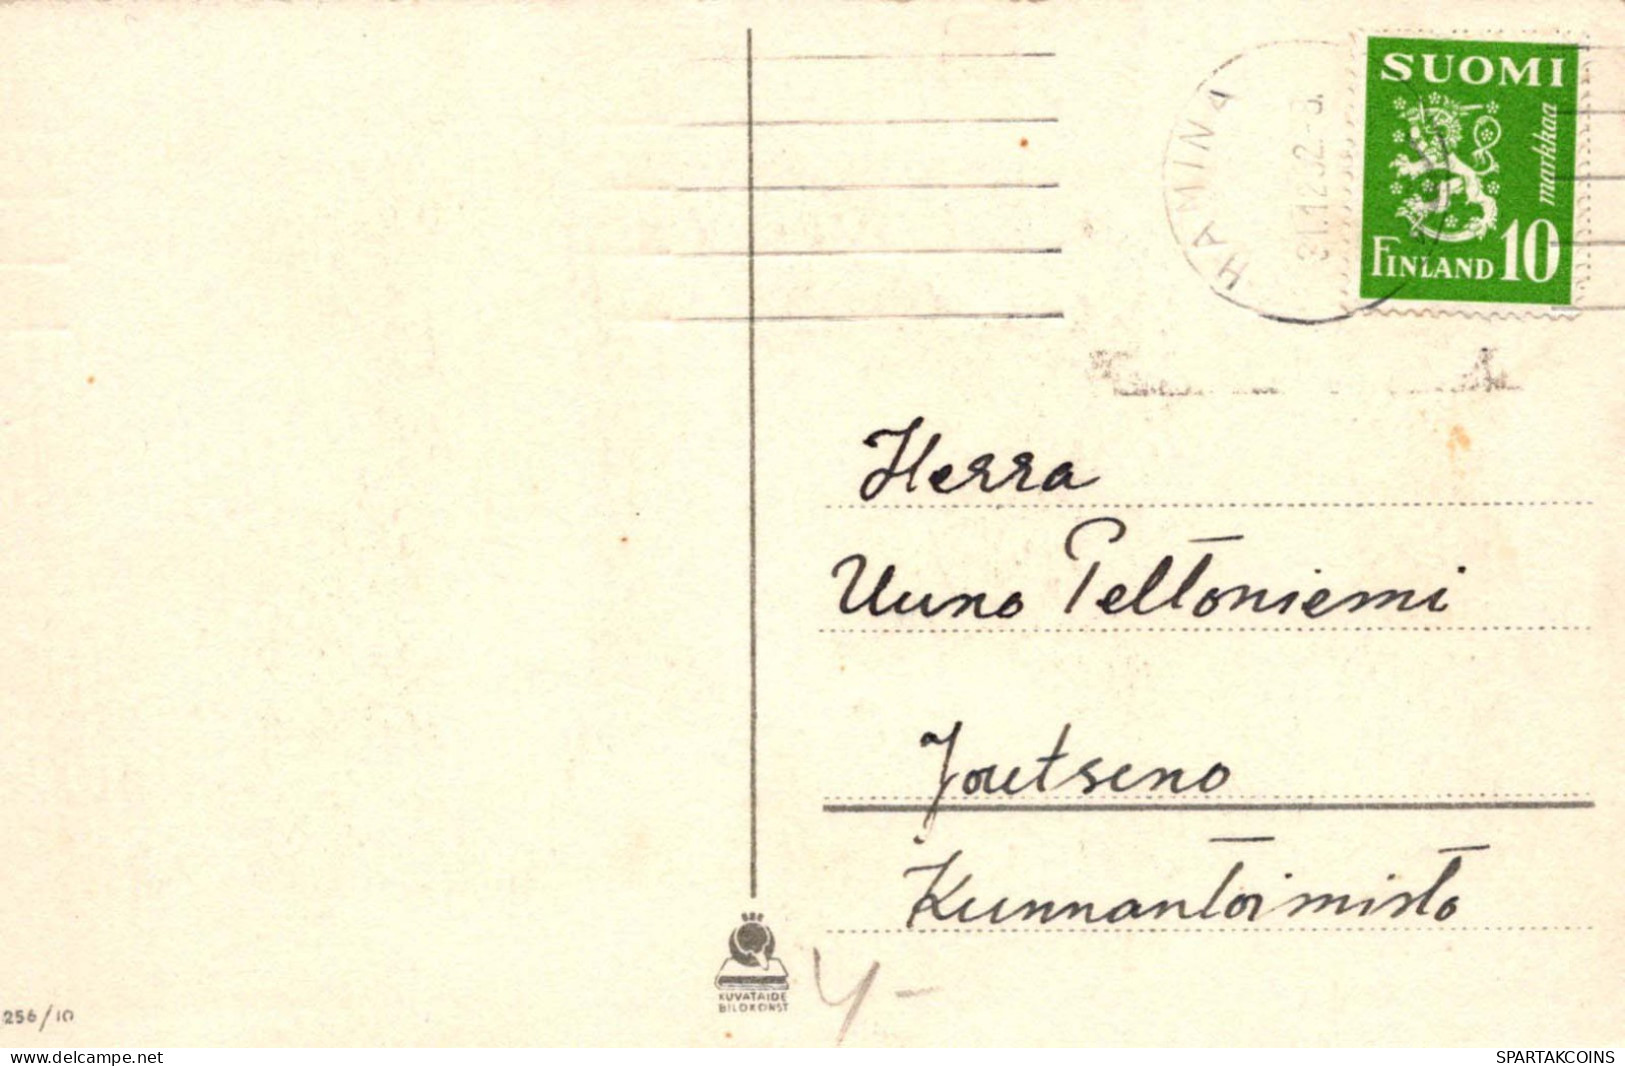 HAMINA
SUOMI
10 markkaa
FINLAND
Herra
Uuno Peltoniemi
Joutseno
Kunnantoimisto
KUVATAIDE
BILDKONST
4-
256/10
www.delcampe.net
SPARTAKCOINS